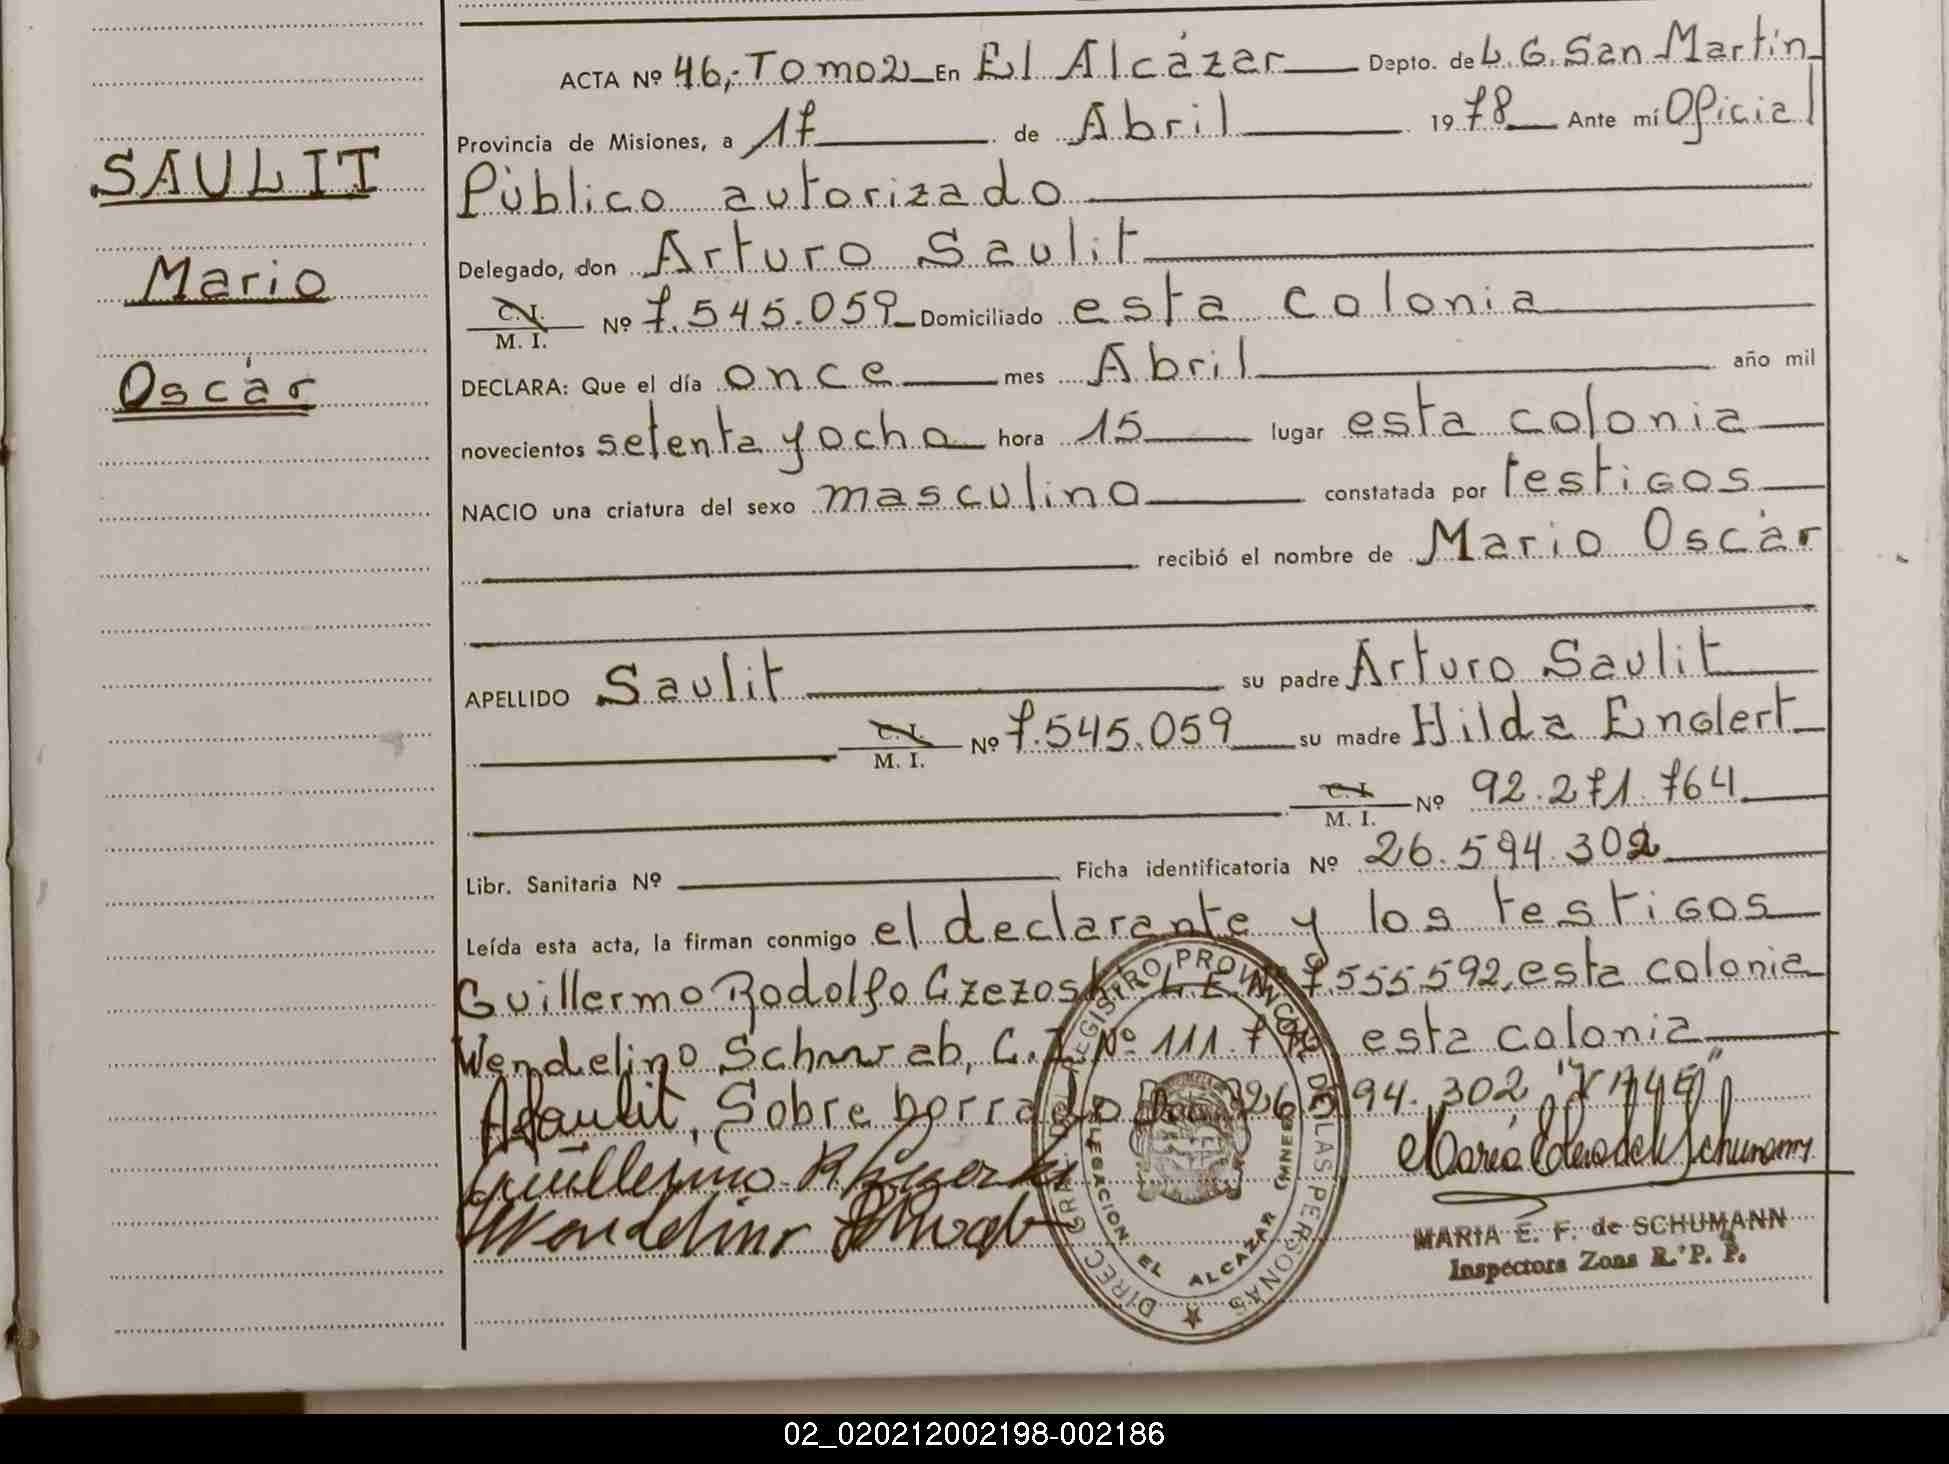 ACTA Nº 46,- Tomo 2 En El Alcázar Depto. de L. G. San Martín
Provincia de Misiones, a 17 de Abril 1978 Ante mí Oficial
Público autorizado
Delegado, don Arturo Saulit
C. I. M. I. Nº 7.545.059 Domiciliado esta colonia
DECLARA: Que el día once mes Abril año mil
novecientos setenta y ocho hora 15 lugar esta colonia
NACIO una criatura del sexo masculino constatada por testigos
recibió el nombre de Mario Oscár
APELLIDO Saulit su padre Arturo Saulit
C. I. M. I. Nº 7.545.059 su madre Hilda Englert
C. I. M. I. Nº 92.271.764
Libr. Sanitaria Nº Ficha identificatoria Nº 26.594.302
Leída esta acta, la firman conmigo el declarante y los testigos
Guillermo Rodolfo Czezoski L.E. Nº 7.555.592, esta colonia
Wendelino Schwab, C.I. Nº 111.7 esta colonia
ASaulit, Sobre borrado 26.594.302 "VALE"
Guillermo R
Wendelino Schwab
SAULIT
Mario
Oscár
REGISTRO PROVINCIAL DE LAS PERSONAS
DIREC. GRAL.
DELEGACION EL ALCAZAR (MNES)
MARIA E. F. de SCHUMANN
Inspectora Zona R. P. P.
02_020212002198-002186